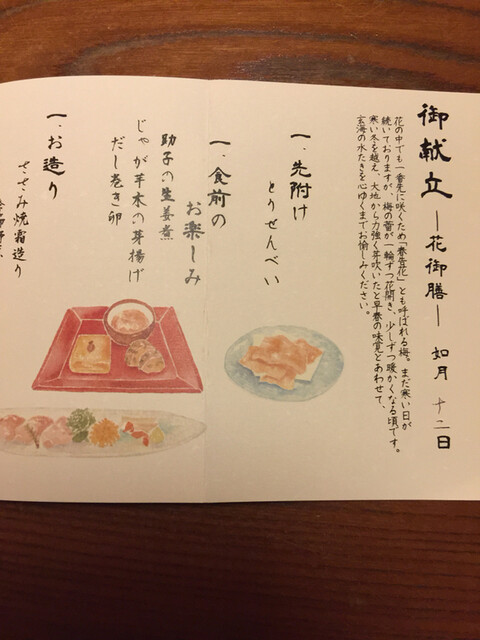 御献立 ―花御膳― 如月 十二日
花の中でも一番先に咲くため「春告花」とも呼ばれる梅。まだ寒い日が
続いておりますが、梅の蕾が一輪ずつ花開き、少しずつ暖かくなる頃です。
寒い冬を越え、大地から力強く芽吹いたと早春の味覚とあわせて、
玄海の水たきを心ゆくまでお愉しみください。
一、先附け
とりせんべい
一、食前の
お楽しみ
助子の生姜煮
じゃが芋木の芽揚げ
だし巻き卵
一、お造り
ささみ焼霜造り